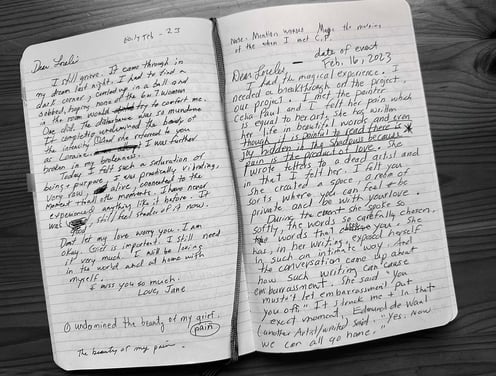 Early Feb - 23
Dear Lorelei
I still grieve. It came through in
my dream last night. I had to find a
dark corner, curled up in a ball and
sobbed. Every none of the women
in the room would try to comfort me.
One did. The disturbance was so mundane
It completely undermined the beauty of
the intensity. She referred to you
as Lorraine. I was further
broken in my brokenness.
Today I felt such a saturation of
being & purpose. I was practically vibrating,
very raw, alive, connected to the
moment than other moments. I have never
experienced anything like it before. It
was still feel shadow of it now.
Don't let my love worry you. I am
okay. Grief is important. I still need
it very much. I will be living
in the world and at home with
myself.
I miss you so much.
Love, Jane
① undermined the beauty of my grief.
pain
The beauty of my pain.
Note: Mention words
of the when I met C.P.
date of event
Feb. 16, 2023
Dear Lorelei,
I had the magical experience. I
needed a breakthrough on the project,
our project. I met the painter
Celia Paul and I felt her pain which
is equal to her art. She has written
her life in beautiful words and even
though it is painful to read there is
joy hidden in the shadows because
pain is the product of love. She
wrote letters to a dead artist and
in that I felt her. I felt you
She created a space, a room of
sorts where you can feel & be
private and be with your love.
During the event she spoke so
softly, the words so carefully chosen.
The words that
has, in her writing, exposed herself
in such an intimate way. And
the conversation came up about
how such writing can cause
embarrassment. She said "You
mustn't let embarrassment put
you off." It struck me & in that
exact moment, Edmund de Waal
(another Artist/writer) said, "Yes. Now
we can all go home."